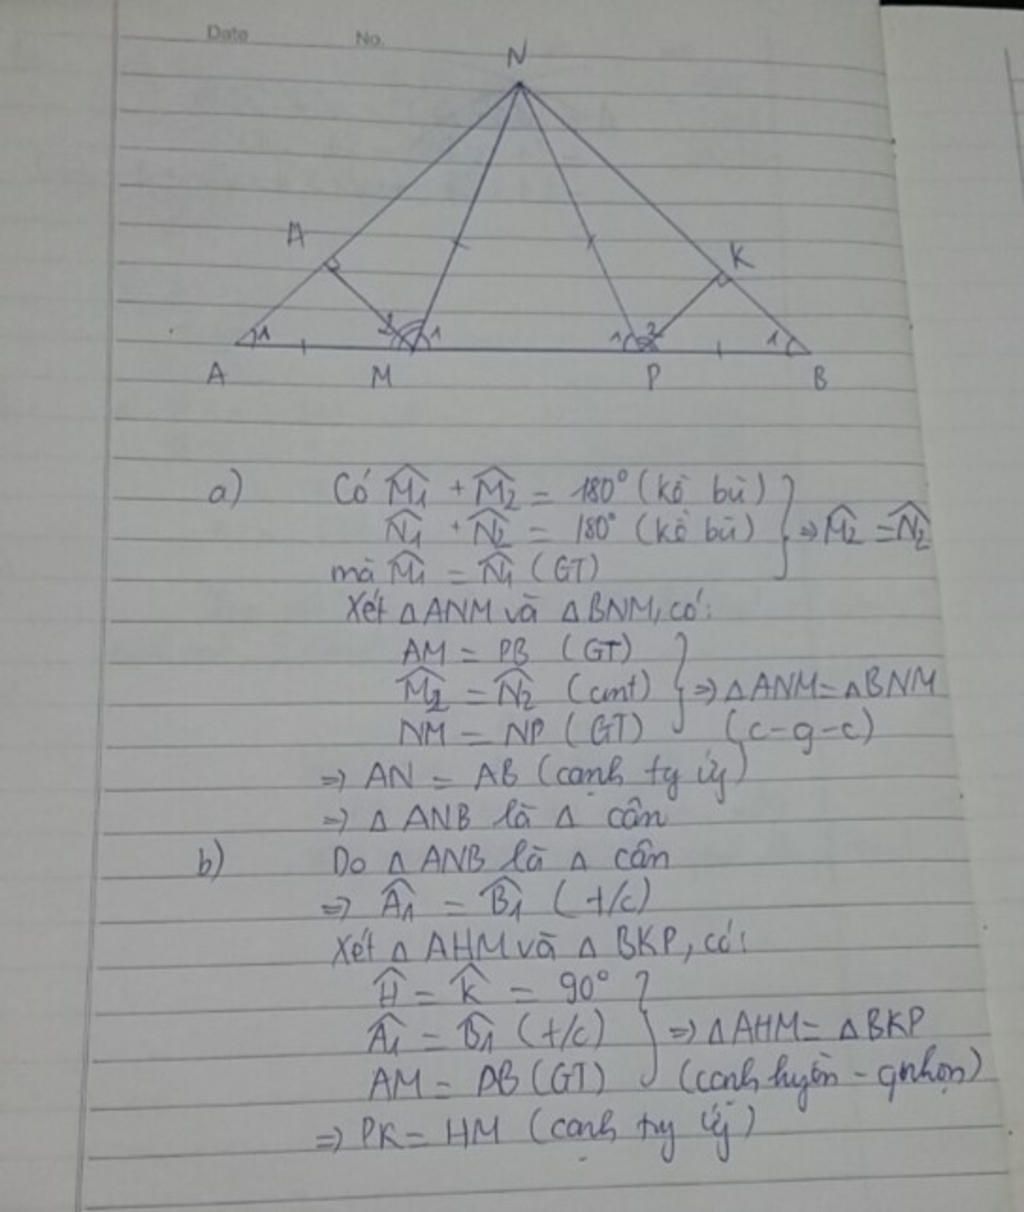 Date No.
N
A
K
1 2 1 1 2 1
A M P B
a) Có M̂1 + M̂2 = 180° (kề bù)
N̂1 + N̂2 = 180° (kề bù) } ⇒ M̂2 = N̂2
mà M̂1 = N̂1 (GT)
Xét △ANM và △BNM, có:
AM = PB (GT)
M̂2 = N̂2 (cmt) } ⇒ △ANM = △BNM
NM = NP (GT) (c-g-c)
⇒ AN = AB (cạnh tg ứg)
⇒ △ ANB là △ cân
b) Do △ ANB là △ cân
⇒ Â1 = B̂1 (t/c)
Xét △ AHM và △ BKP, có:
Ĥ = K̂ = 90°
Â1 = B̂1 (t/c) } ⇒ △AHM = △BKP
AM = PB (GT) (cạnh huyền - gnhọn)
⇒ PK = HM (cạnh tg ứg)